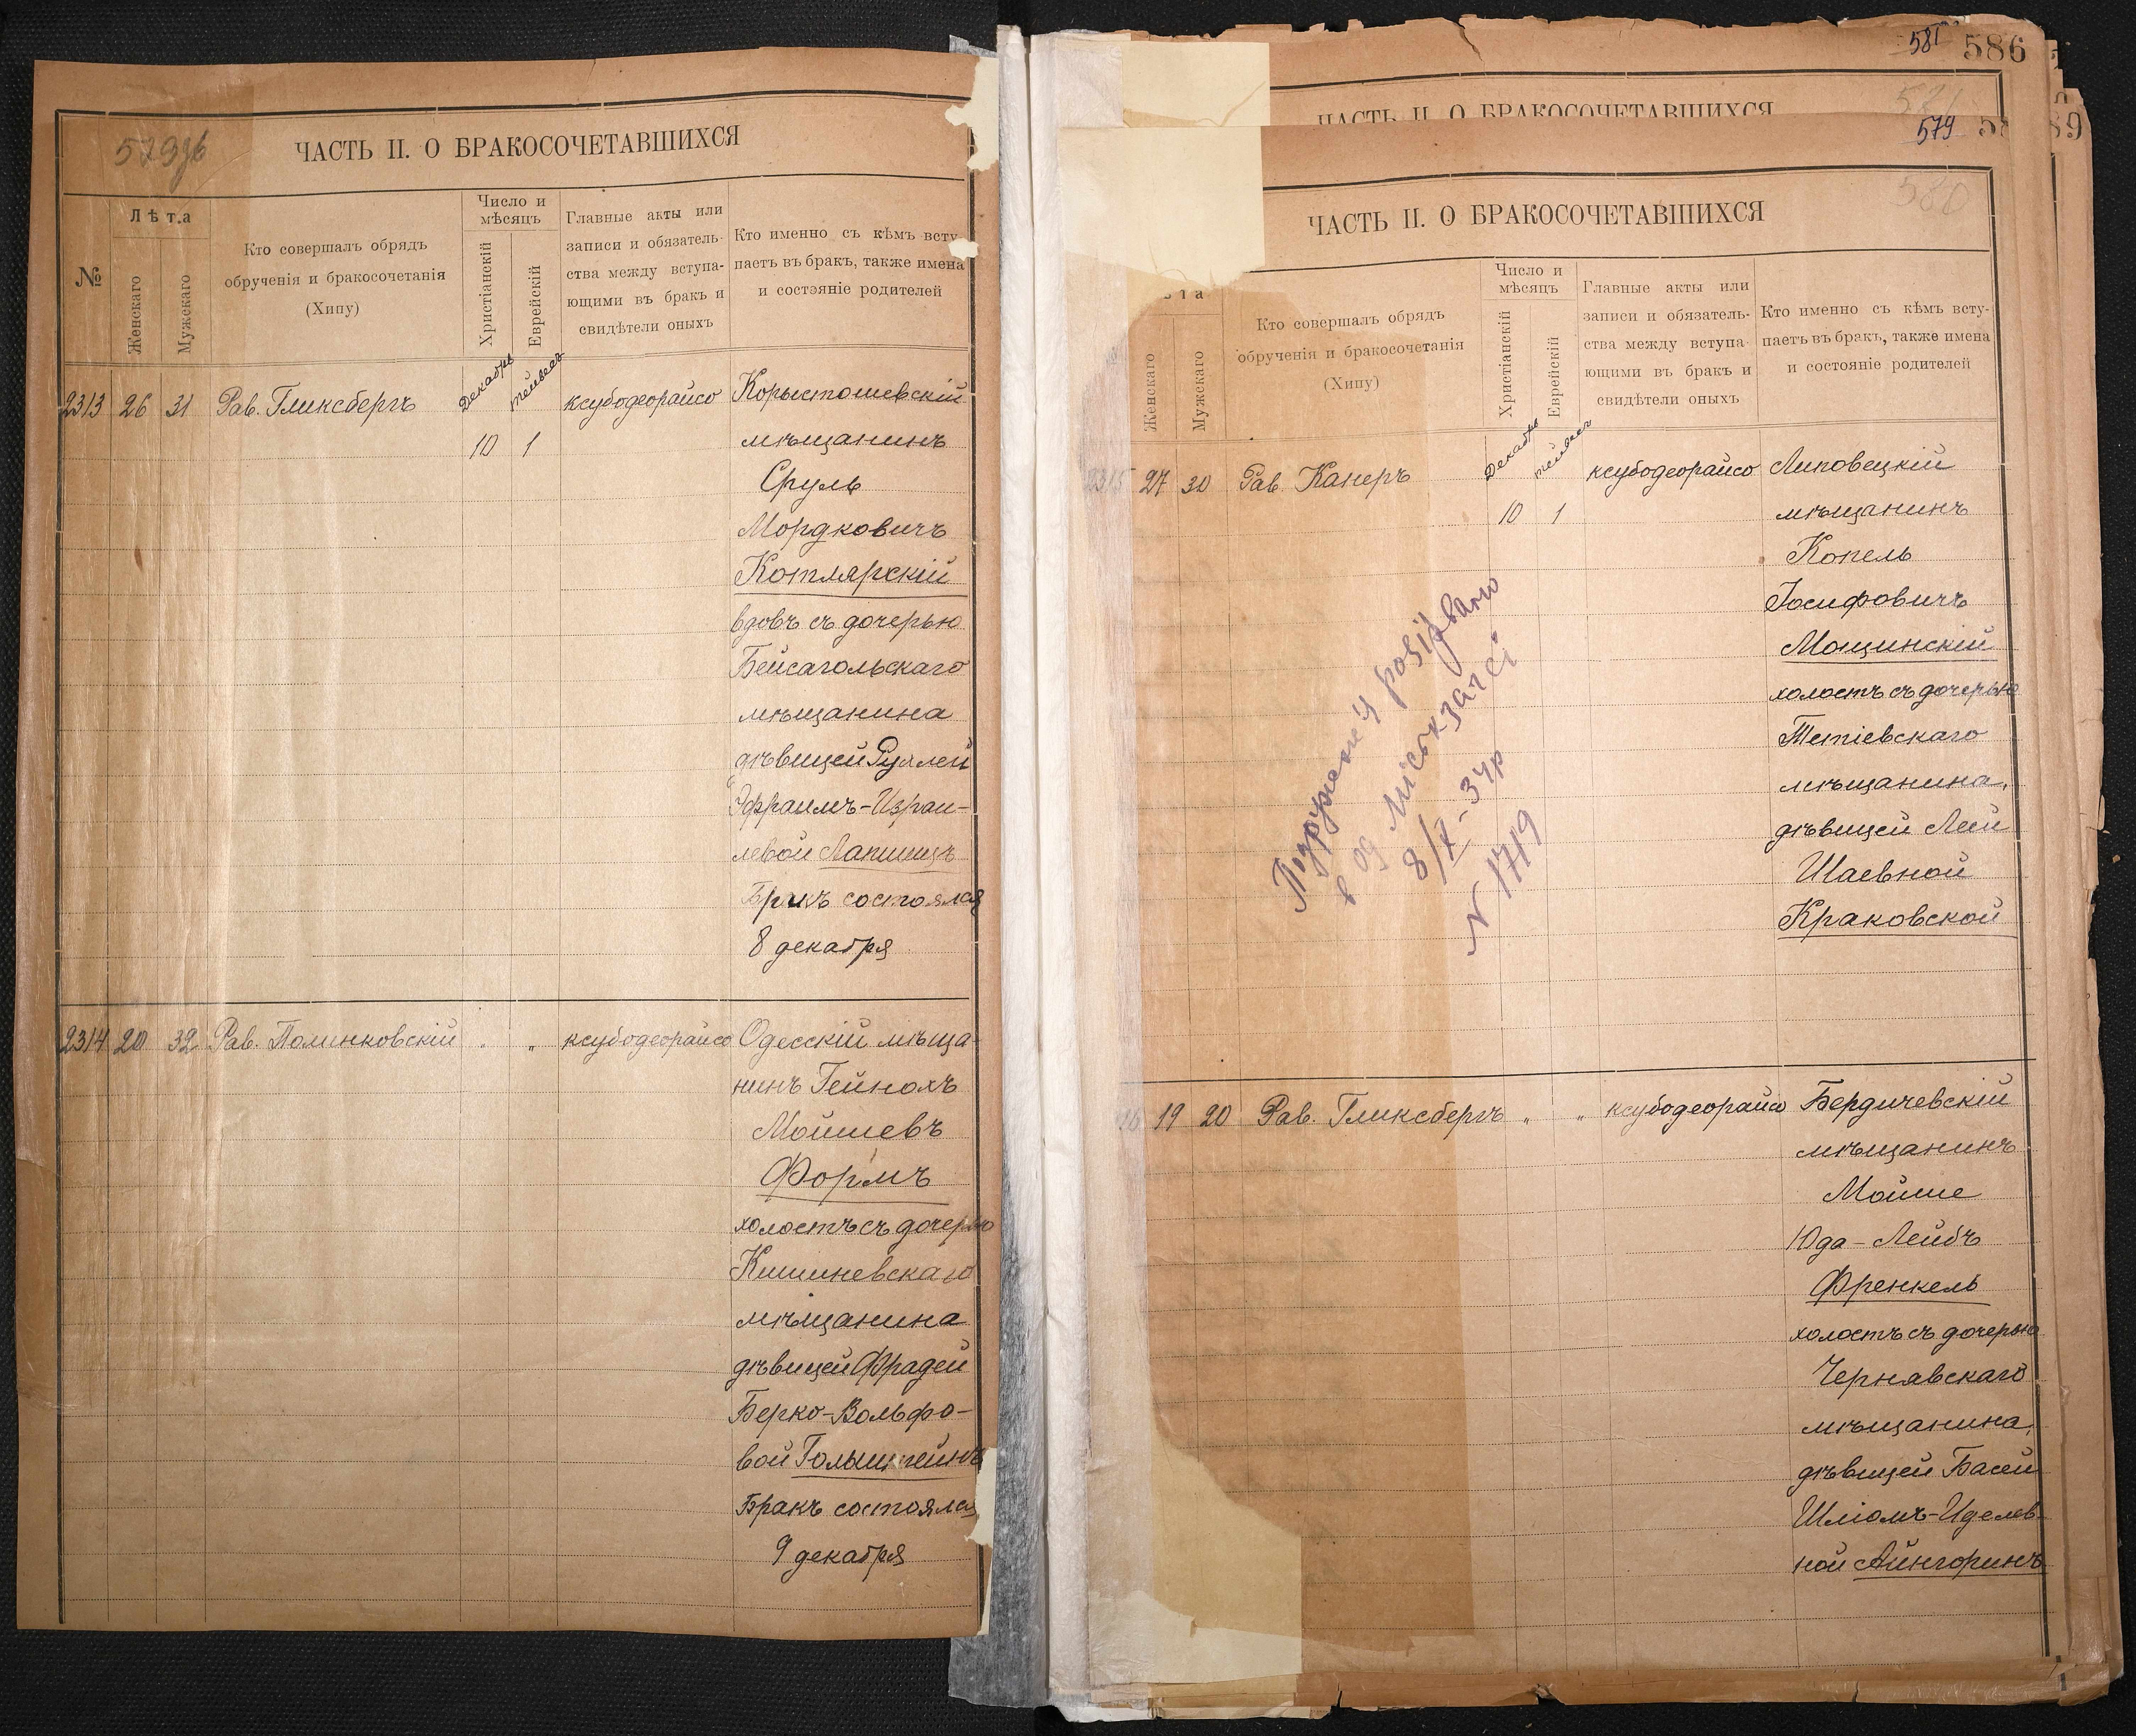 579об
ЧАСТЬ II. О БРАКОСОЧЕТАВШИХСЯ
№
Лѣта
Женскаго
Мужскаго
Кто совершалъ обрядъ
обрученія и бракосочетанія
(Хипу)
Число и
мѣсяцъ
Христіанскій
Еврейскій
Главные акты или
записи и обязатель-
ства между вступа-
ющими въ бракъ и
свидѣтели оныхъ
Кто именно съ кѣмъ всту
паетъ въ бракъ, также имена
и состояніе родителей
2313 26 31 Рав. Гликсбергъ Декабрь Тейвесъ ксубодеорайсо Корыстошевскій
10 1 мѣщанинъ
Сруль
Мордковичъ
Котлярскій
вдовъ съ дочерью
Бейсагольскаго
мѣщанина
дѣвицей Рухлей
Эфраимъ-Израи-
левой Лапшицъ
Бракъ состоялся
8 декабря
2314 20 32 Рав. Полинковскій " " ксубодеорайсо Одесскій мѣща-
нинъ Гейнохъ
Мойшевъ
Формъ
холостъ съ дочерью
Кишиневскаго
мѣщанина
дѣвицей Фрадей
Берко-Вольфо-
вой Гольштейнъ
Бракъ состоялся
9 декабря
581 586
ЧАСТЬ II. О БРАКОСОЧЕТАВШИХСЯ
579
580
ЧАСТЬ II. О БРАКОСОЧЕТАВШИХСЯ
та
Женскаго
Мужскаго
Кто совершалъ обрядъ
обрученія и бракосочетанія
(Хипу)
Число и
мѣсяцъ
Христіанскій
Еврейскій
Главные акты или
записи и обязатель-
ства между вступа-
ющими въ бракъ и
свидѣтели оныхъ
Кто именно съ кѣмъ всту-
паетъ въ бракъ, также имена
и состояніе родителей
2315 27 30 Рав. Канеръ Декабрь Тейвесъ ксубодеорайсо Липовецкій
10 1 мѣщанинъ
Копель
Іосифовичъ
Мощинскій
холостъ съ дочерью
Тетіевскаго
мѣщанина,
дѣвицей Леей
Шаевной
Краковской
Подружжя розірвано
в од. міськзагсі
8/X-34р
N 1719
16 19 20 Рав. Гликсбергъ " " ксубодеорайсо Бердичевскій
мѣщанинъ
Мойше
Юда-Лейбъ
Френкель
холостъ съ дочерью
Чернявскаго
мѣщанина,
дѣвицей Басей
Шліомъ-Иделев-
ной Айнгоринъ